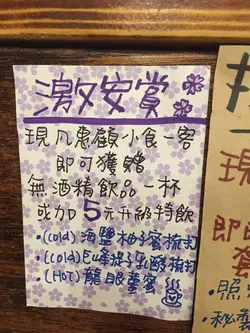 激安賞
現凡惠顧小食一客
即可獲贈
無酒精飲品一杯
或加5元升級特飲
·(Cold)海鹽柚子蜜梳打
·(Cold)巨峰提子乳酸梳打
·(HOT)龍眼薑蜜
即
照